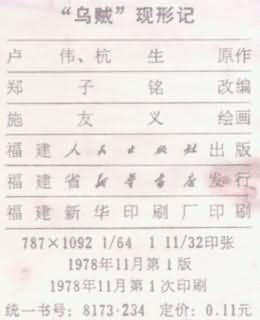 “乌贼”现形记
卢伟、杭生 原作
郑子铭 改编
施友义 绘画
福建人民出版社出版
福建省新华书店发行
福建新华印刷厂印刷
787×1092 1/64 1 11/32印张
1978年11月第1版
1978年11月第1次印刷
统一书号：8173·234 定价：0.11元